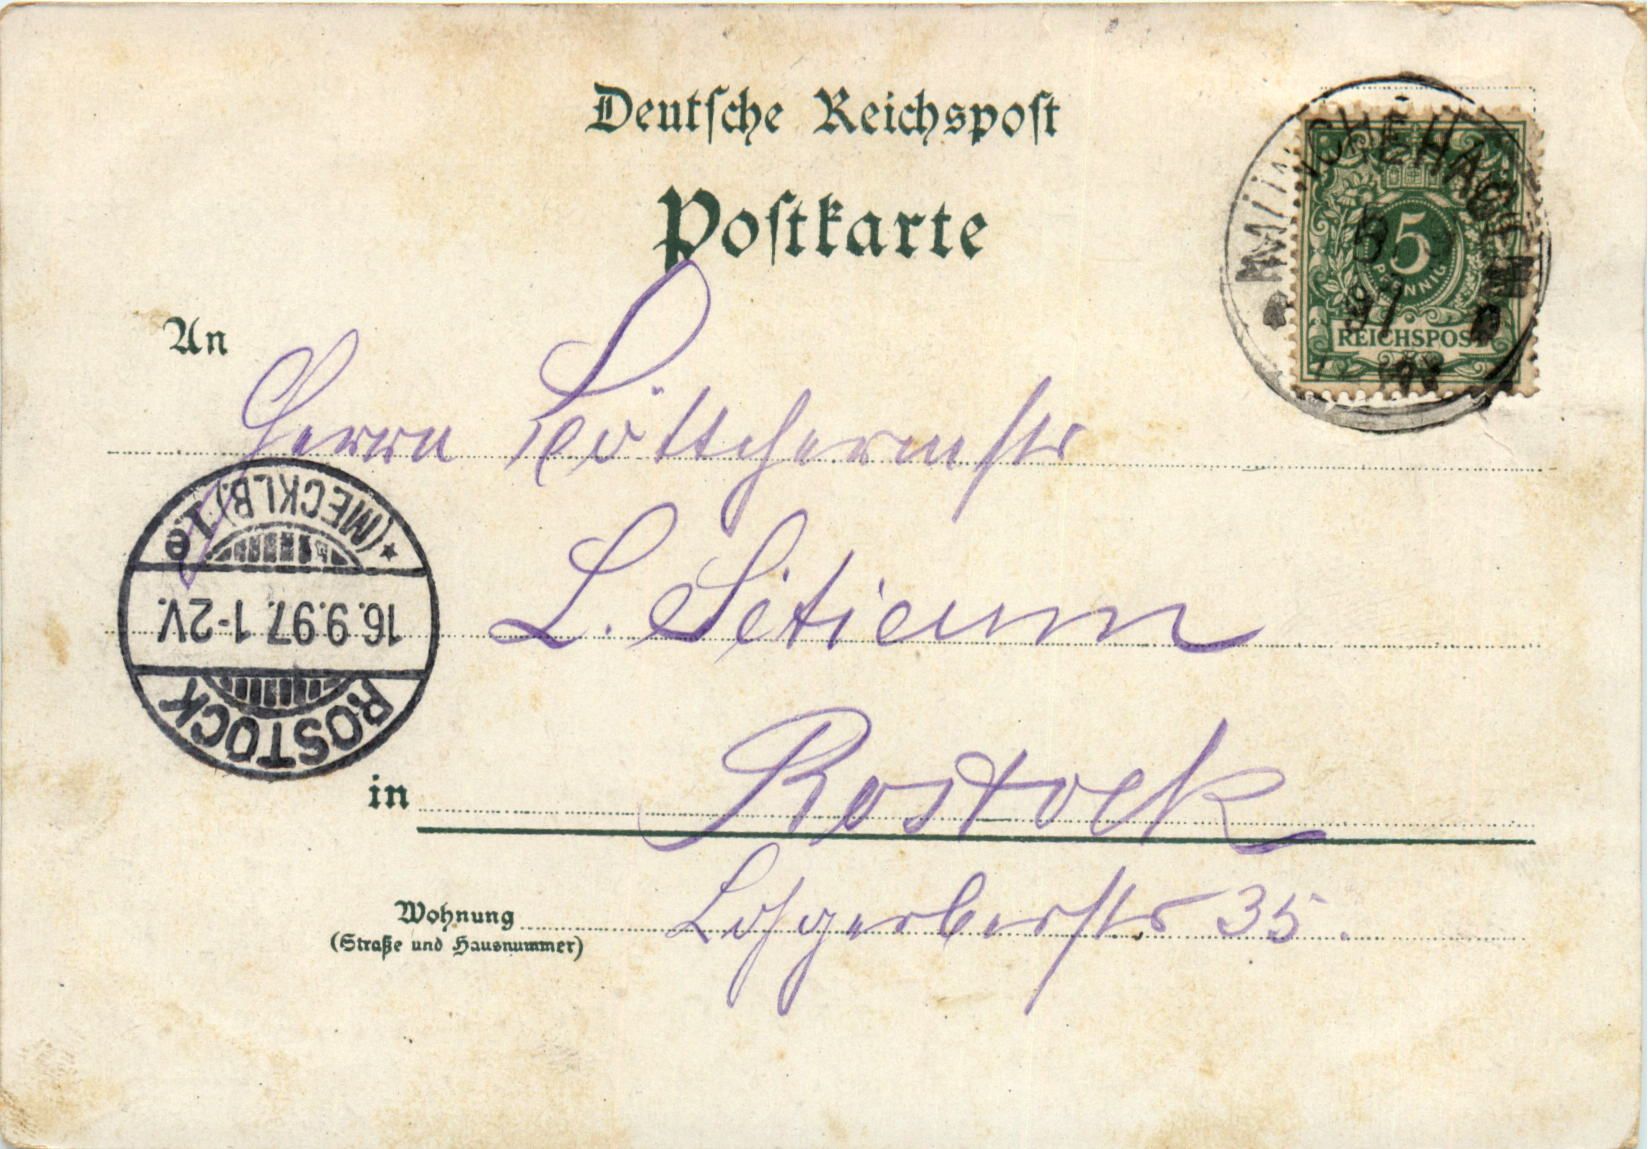 Deutsche Reichspost
Postkarte
MÜNCHEHAGEN
97
5
PFENNIG
REICHSPOST
An
Herrn Böttchermstr
L.
in Rostock
Wohnung
(Straße und Hausnummer)
Lohgerberstr 35.
ROSTOCK
16.9.97. 1-2V.
* (MECKLB.) 1e